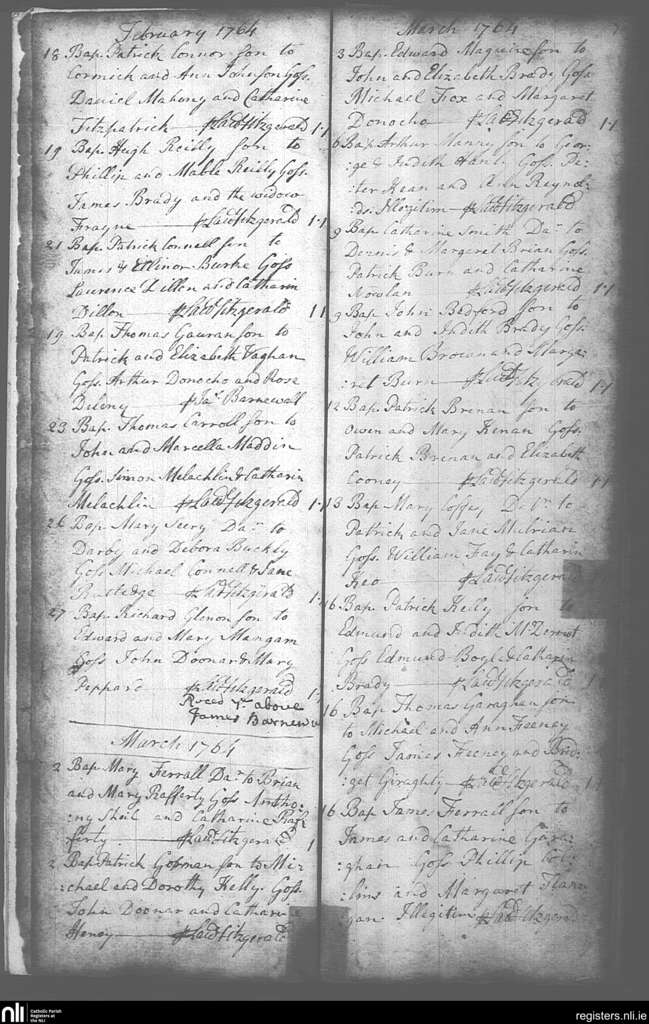 February 1764
18 Bap. Patrick Connor son to
Cormick and Ann Johnson Goss.
Daniel Mahony and Catharine
Fitzpatrick — Lawd. fitzgerald 1-1
19 Bap. Hugh Reilly son to
Phillip and Mable Reilly Goss.
James Brady and the widow
Frayne — Lawd. fitzgerald 1-1
21 Bap. Patrick Connell son to
James & Ellinor Burke Goss
Laurence Dillon and Catharin
Dillon — Lawd. fitzgerald 11
19 Bap. Thomas Gauran son to
Patrick and Elizabeth Vaghan
Goss. Arthur Donocho and Rose
Deleny — Jas. Barnewall
23 Bap. Thomas Carroll son to
John and Marcella Maddin
Goss. Simon Melachlin & Catharin
Melachlin — Lawd. fitzgerald 1-1
26 Bap. Mary Seery Dar. to
Darby and Debora Buckly
Goss Michael Connell & Jane
Rutledge — Lawd. fitzgerald 1-
27 Bap. Richard Glenon son to
Edward and Mary Mangam
Goss John Doonar & Mary
Peppard — Lawd. fitzgerald 1
Rveed ye. above
James Barnew
March 1764
2 Bap. Mary Ferrall Dar. to Brian
and Mary Rafferty Goss Antho:
:ny Sheil and Catharine Raf
ferty — Lawd. fitzgerald 1
2 Bap. Patrick Gorman son to Mi-
:chael and Dorothy Kelly. Goss.
John Doonar and Catharin
Heney — Lawd. fitzgerald
March 1764
3 Bap. Edward Maguire son to
John and Elizabeth Brady Goss
Michael Fox and Margaret
Donocho — Lawd. fitzgerald 1-1
6 Bap. Arthur Manry son to Geor-
:ge & Judith Hanly Goss. Pe:
:ter Kean and Ann Reynol:
:ds. Illegitim — Lawd. fitzgerald
9 Bap. Catherine Smith Dar. to
Dennis & Margaret Brian Goss.
Patrick Burn and Catharine
Nowlan — Lawd. fitzgerald 1-1
9 Bap. John Bedford son to
John and Judith Brady Goss.
William Brown and Marga:
:ret Burn — Lawd. fitzgerald 1-1
12 Bap. Patrick Brenan son to
Owen and Mary Kenan Goss.
Patrick Brenan and Elizabeth
Cooney — Lawd. fitzgerald 1-1
13 Bap. Mary Coffey Dar. to
Patrick and Jane Mulrian
Goss. William Fay & Catharin
Keo — Lawd. fitzgerald
16 Bap. Patrick Kelly son to
Edmund and Judith McDermot
Goss Edmund Boyle & Catharin
Brady — Lawd. fitzgerald 1
16 Bap. Thomas Garaghan son
to Michael and Ann Feeney
Goss James Feeney and Brid:
:get Giraghty — Lawd. fitzgerald 1-1
16 Bap. James Ferrall son to
James and Catharine Gara:
:ghan Goss Phillip Col:
:lins and Margaret Flana
gan. Illegitim Lawd. fitzgerald
nli Catholic Parish
Registers at
the NLI
registers.nli.ie